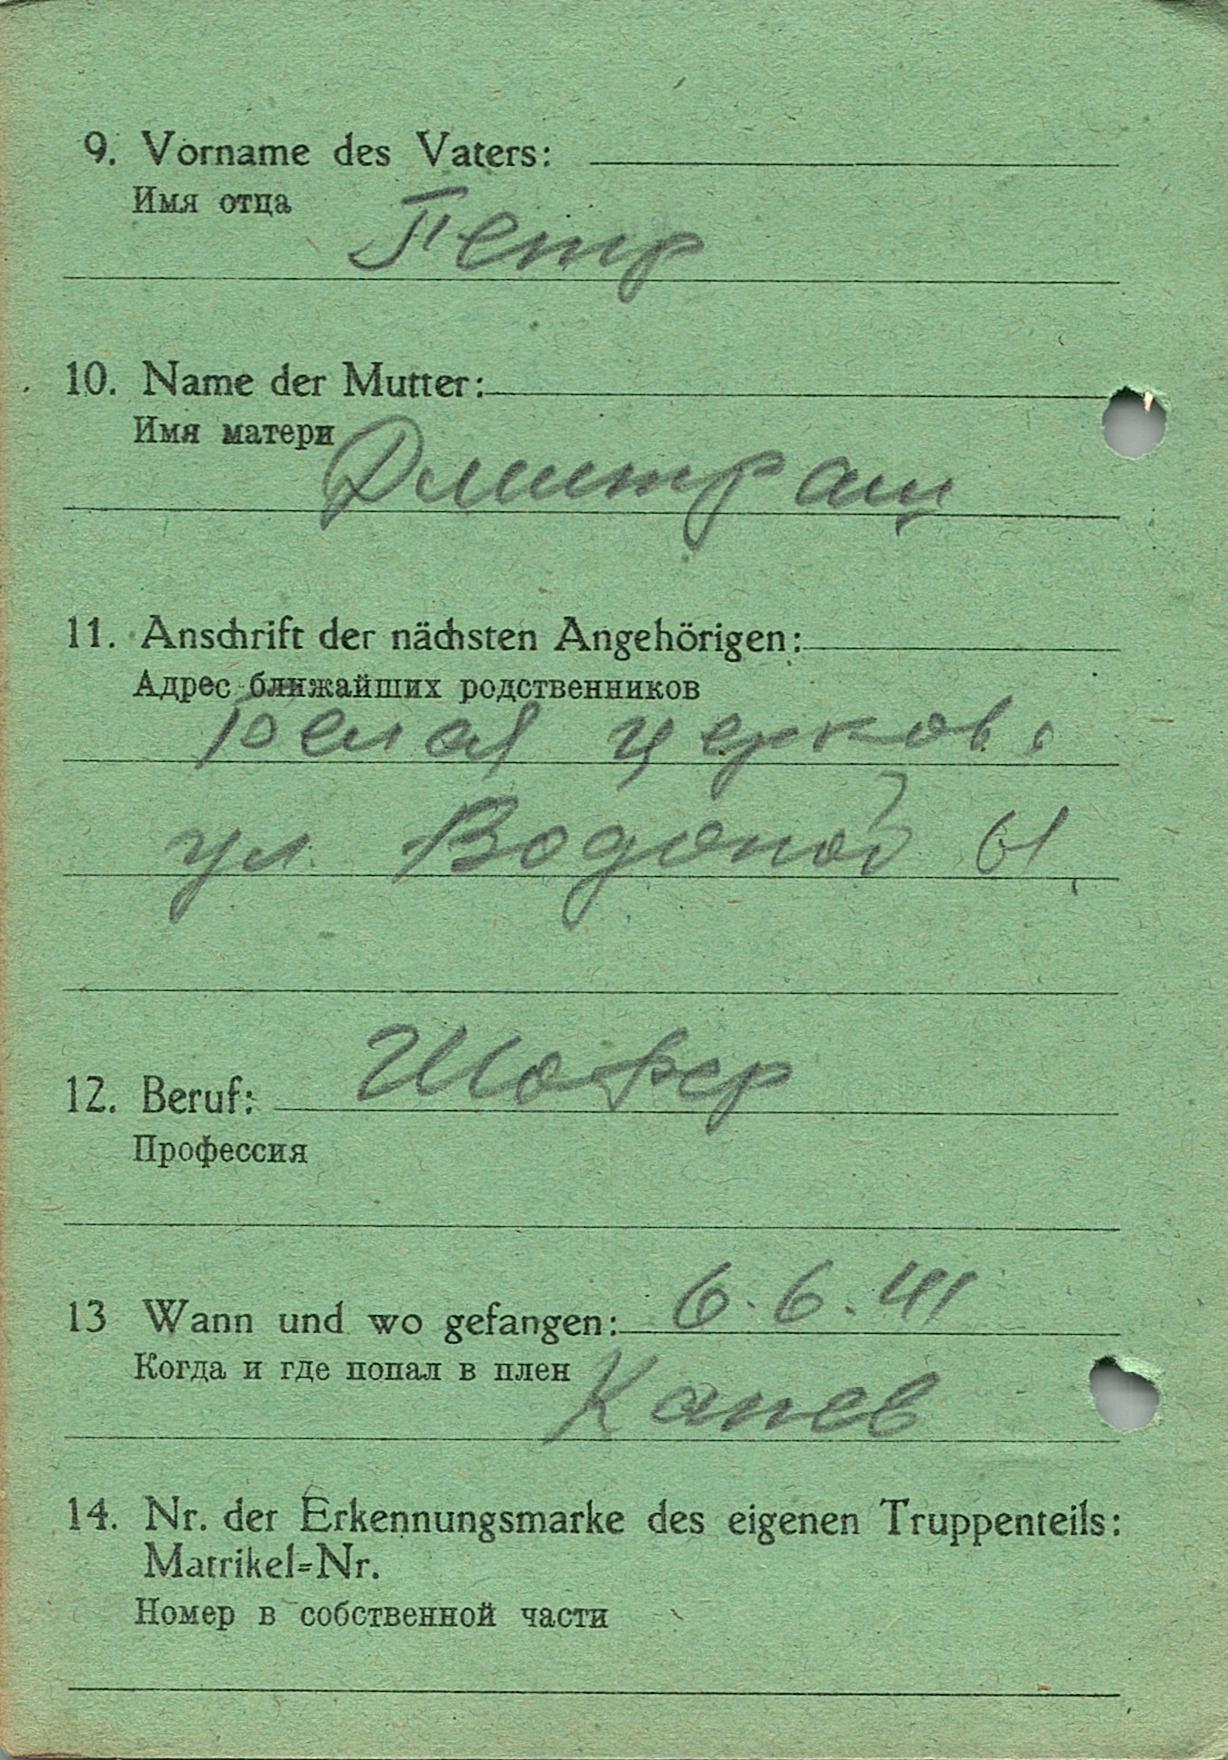 9. Vorname des Vaters:
Имя отца
Петр
10. Name der Mutter:
Имя матери
Дмитраш
11. Anschrift der nächsten Angehörigen:
Адрес ближайших родственников
Белая церковь
ул. Водопой 61
Шофер
12. Beruf:
Профессия
13 Wann und wo gefangen: 6.6.41
Когда и где попал в плен
Канев
14. Nr. der Erkennungsmarke des eigenen Truppenteils:
Matrikel-Nr.
Номер в собственной части